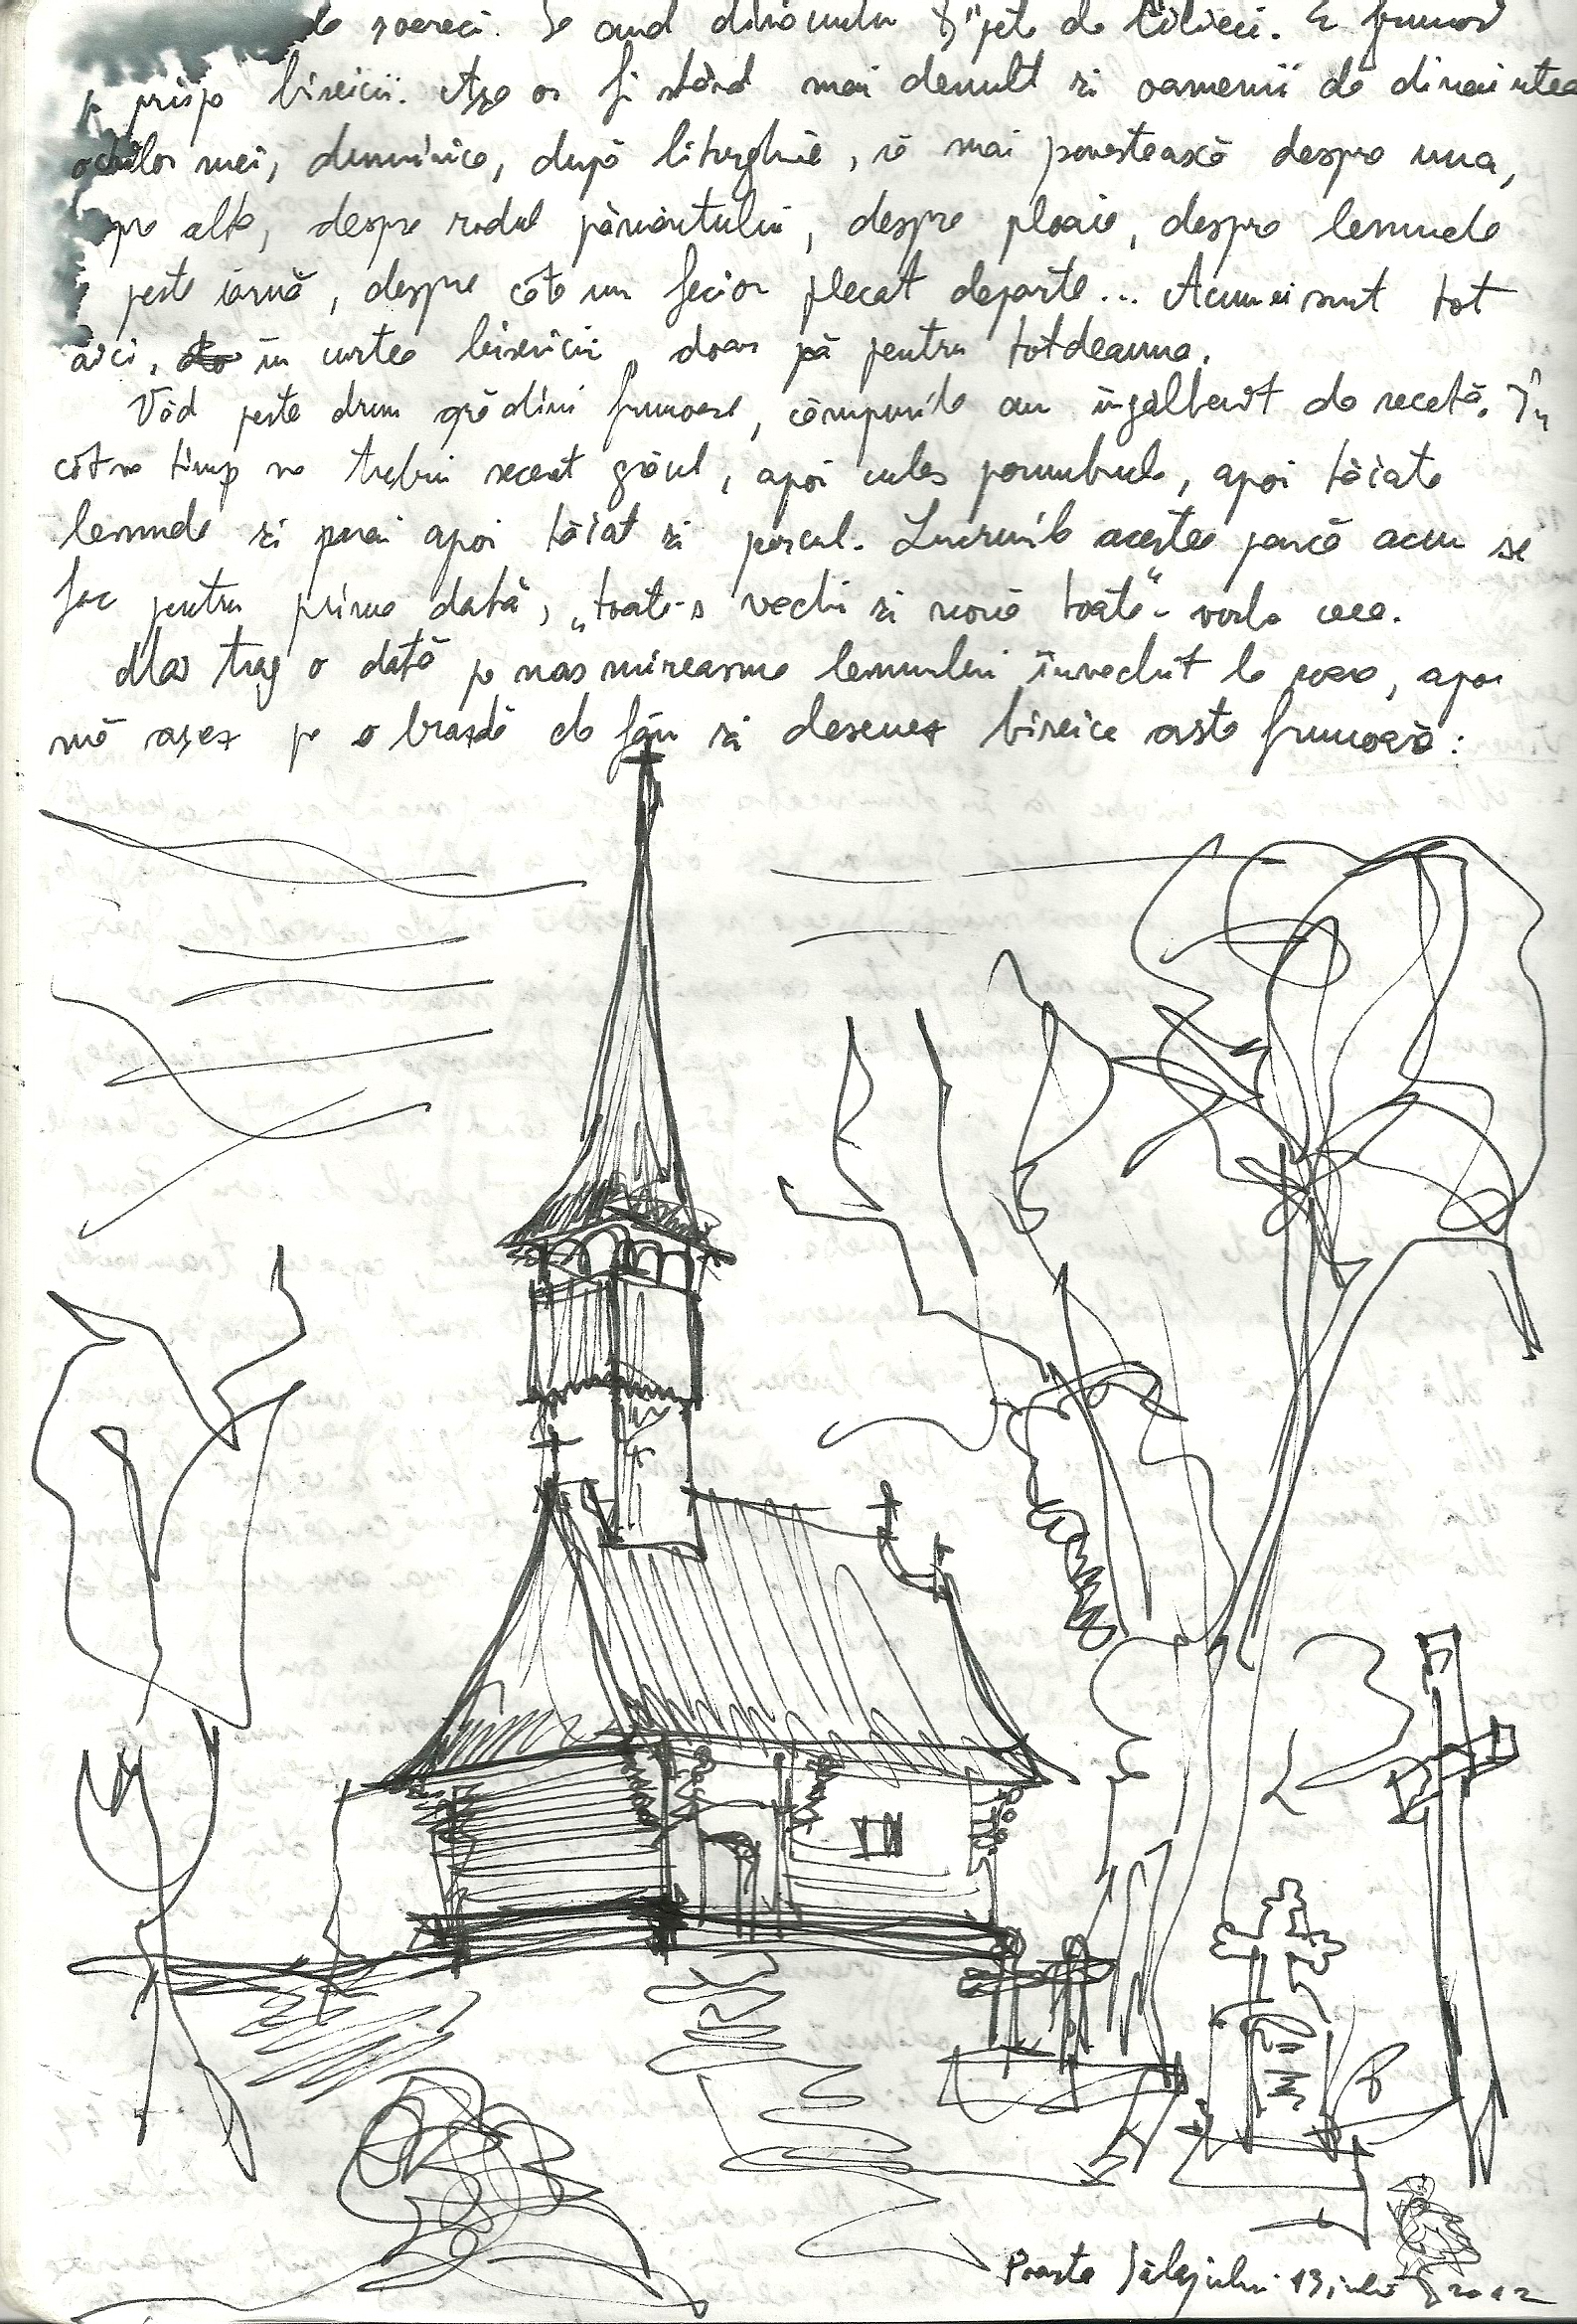 de șoareci. Se aud dinăuntru țipete de lilieci. E frumos
pe prispa bisericii. Așa or fi stând mai demult și oamenii dinaintea
ochilor mei, duminica, după liturghie, să mai povestească despre una,
pre alta, despre rodul pământului, despre ploaie, despre lemnele
peste iarnă, despre câte un fecior plecat departe... Acum ei sunt tot
aici, în curtea bisericii, doar că pentru totdeauna.
Văd peste drum grădini frumoase, câmpurile au îngălbenit de secetă. În
cât timp va trebui secerat grâul, apoi cules porumbul, apoi tăiate
lemnele și apoi tăiat și porcul. Lucrurile acestea parcă acum se
fac pentru prima dată, „toate-s vechi și nouă toate"- vorba ceea.
Mai trag o dată pe nas mireasma lemnului învechit la soare, apoi
mă așez pe o brazdă de fân și desenez biserica asta frumoasă:
Poarta Sălajului 13 iulie 2012